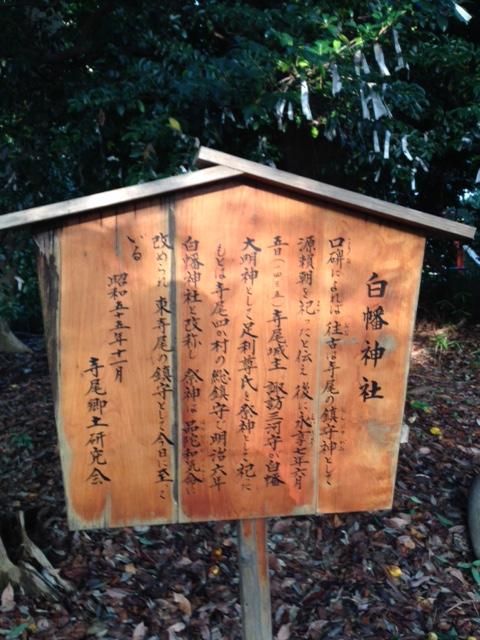 白幡神社
口碑によれば 往古は寺尾の鎮守神として
源頼朝を祀ったと伝え 後に永享七年六月
五日(一四三五)寺尾城主 諏訪三河守が白幡
大明神として足利尊氏を祭神として祀った
もとは寺尾四か村の総鎮守で 明治六年
白幡神社と改称し 祭神は品陀和気命に
改められ 東寺尾の鎮守として今日に至って
いる
昭和五十五年十一月
寺尾郷土研究会